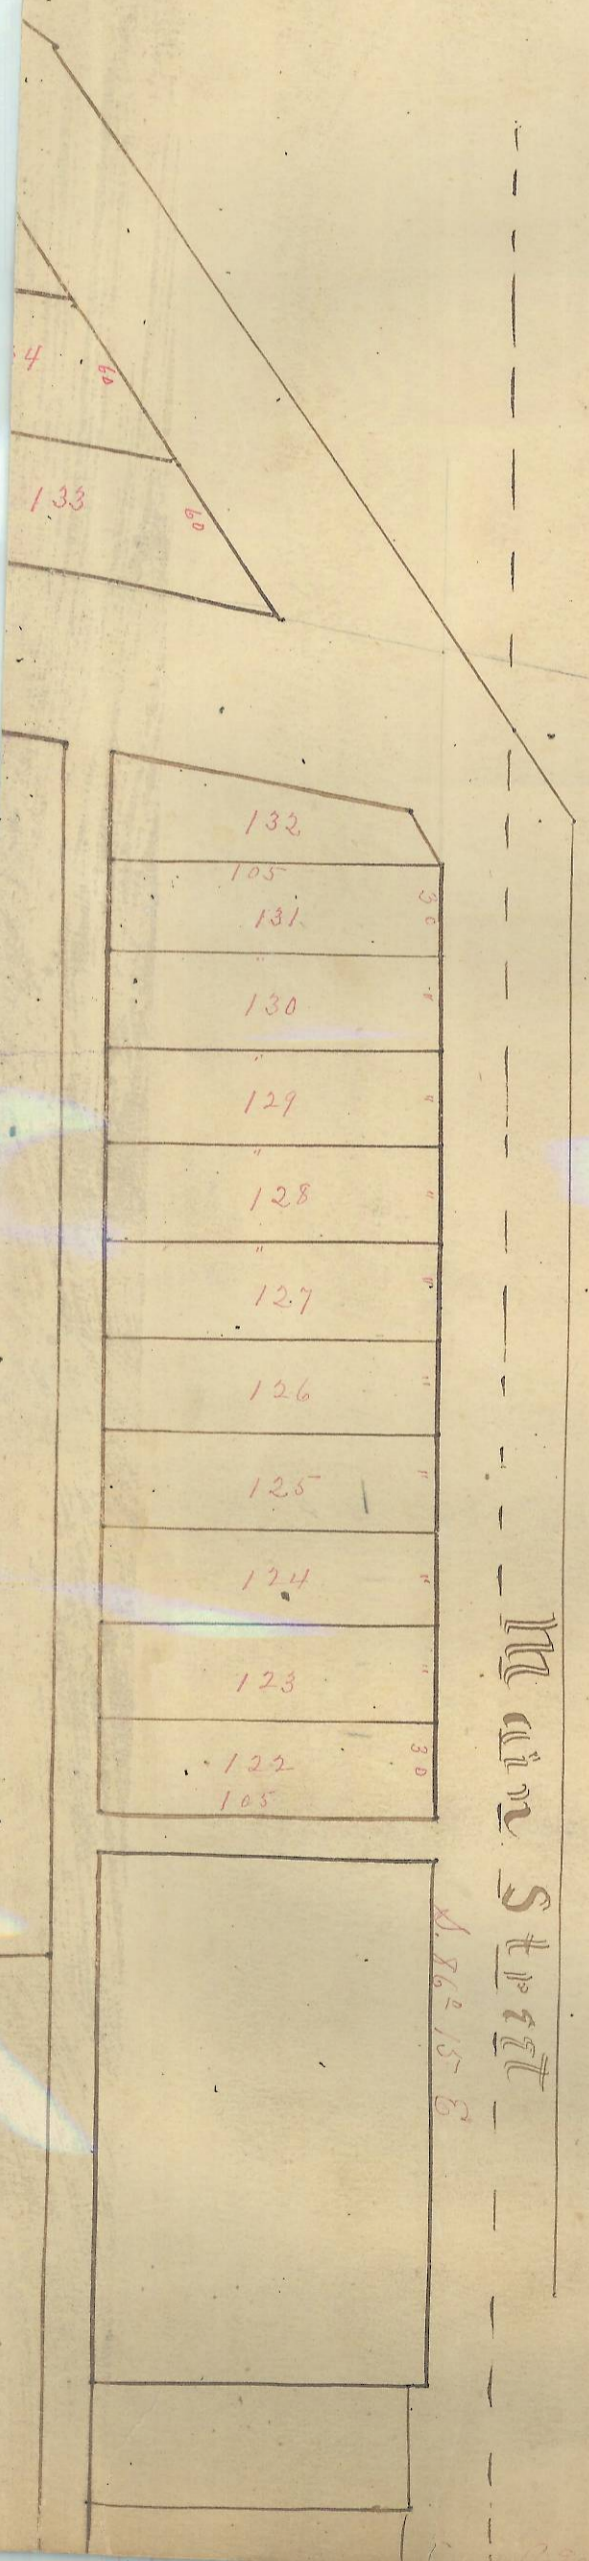 4
60
133
60
132
105
131
30
"
130
"
"
129
"
"
128
"
"
127
"
126
"
125
"
124
"
123
"
122
30
105
S. 86° 15 E
Main Street